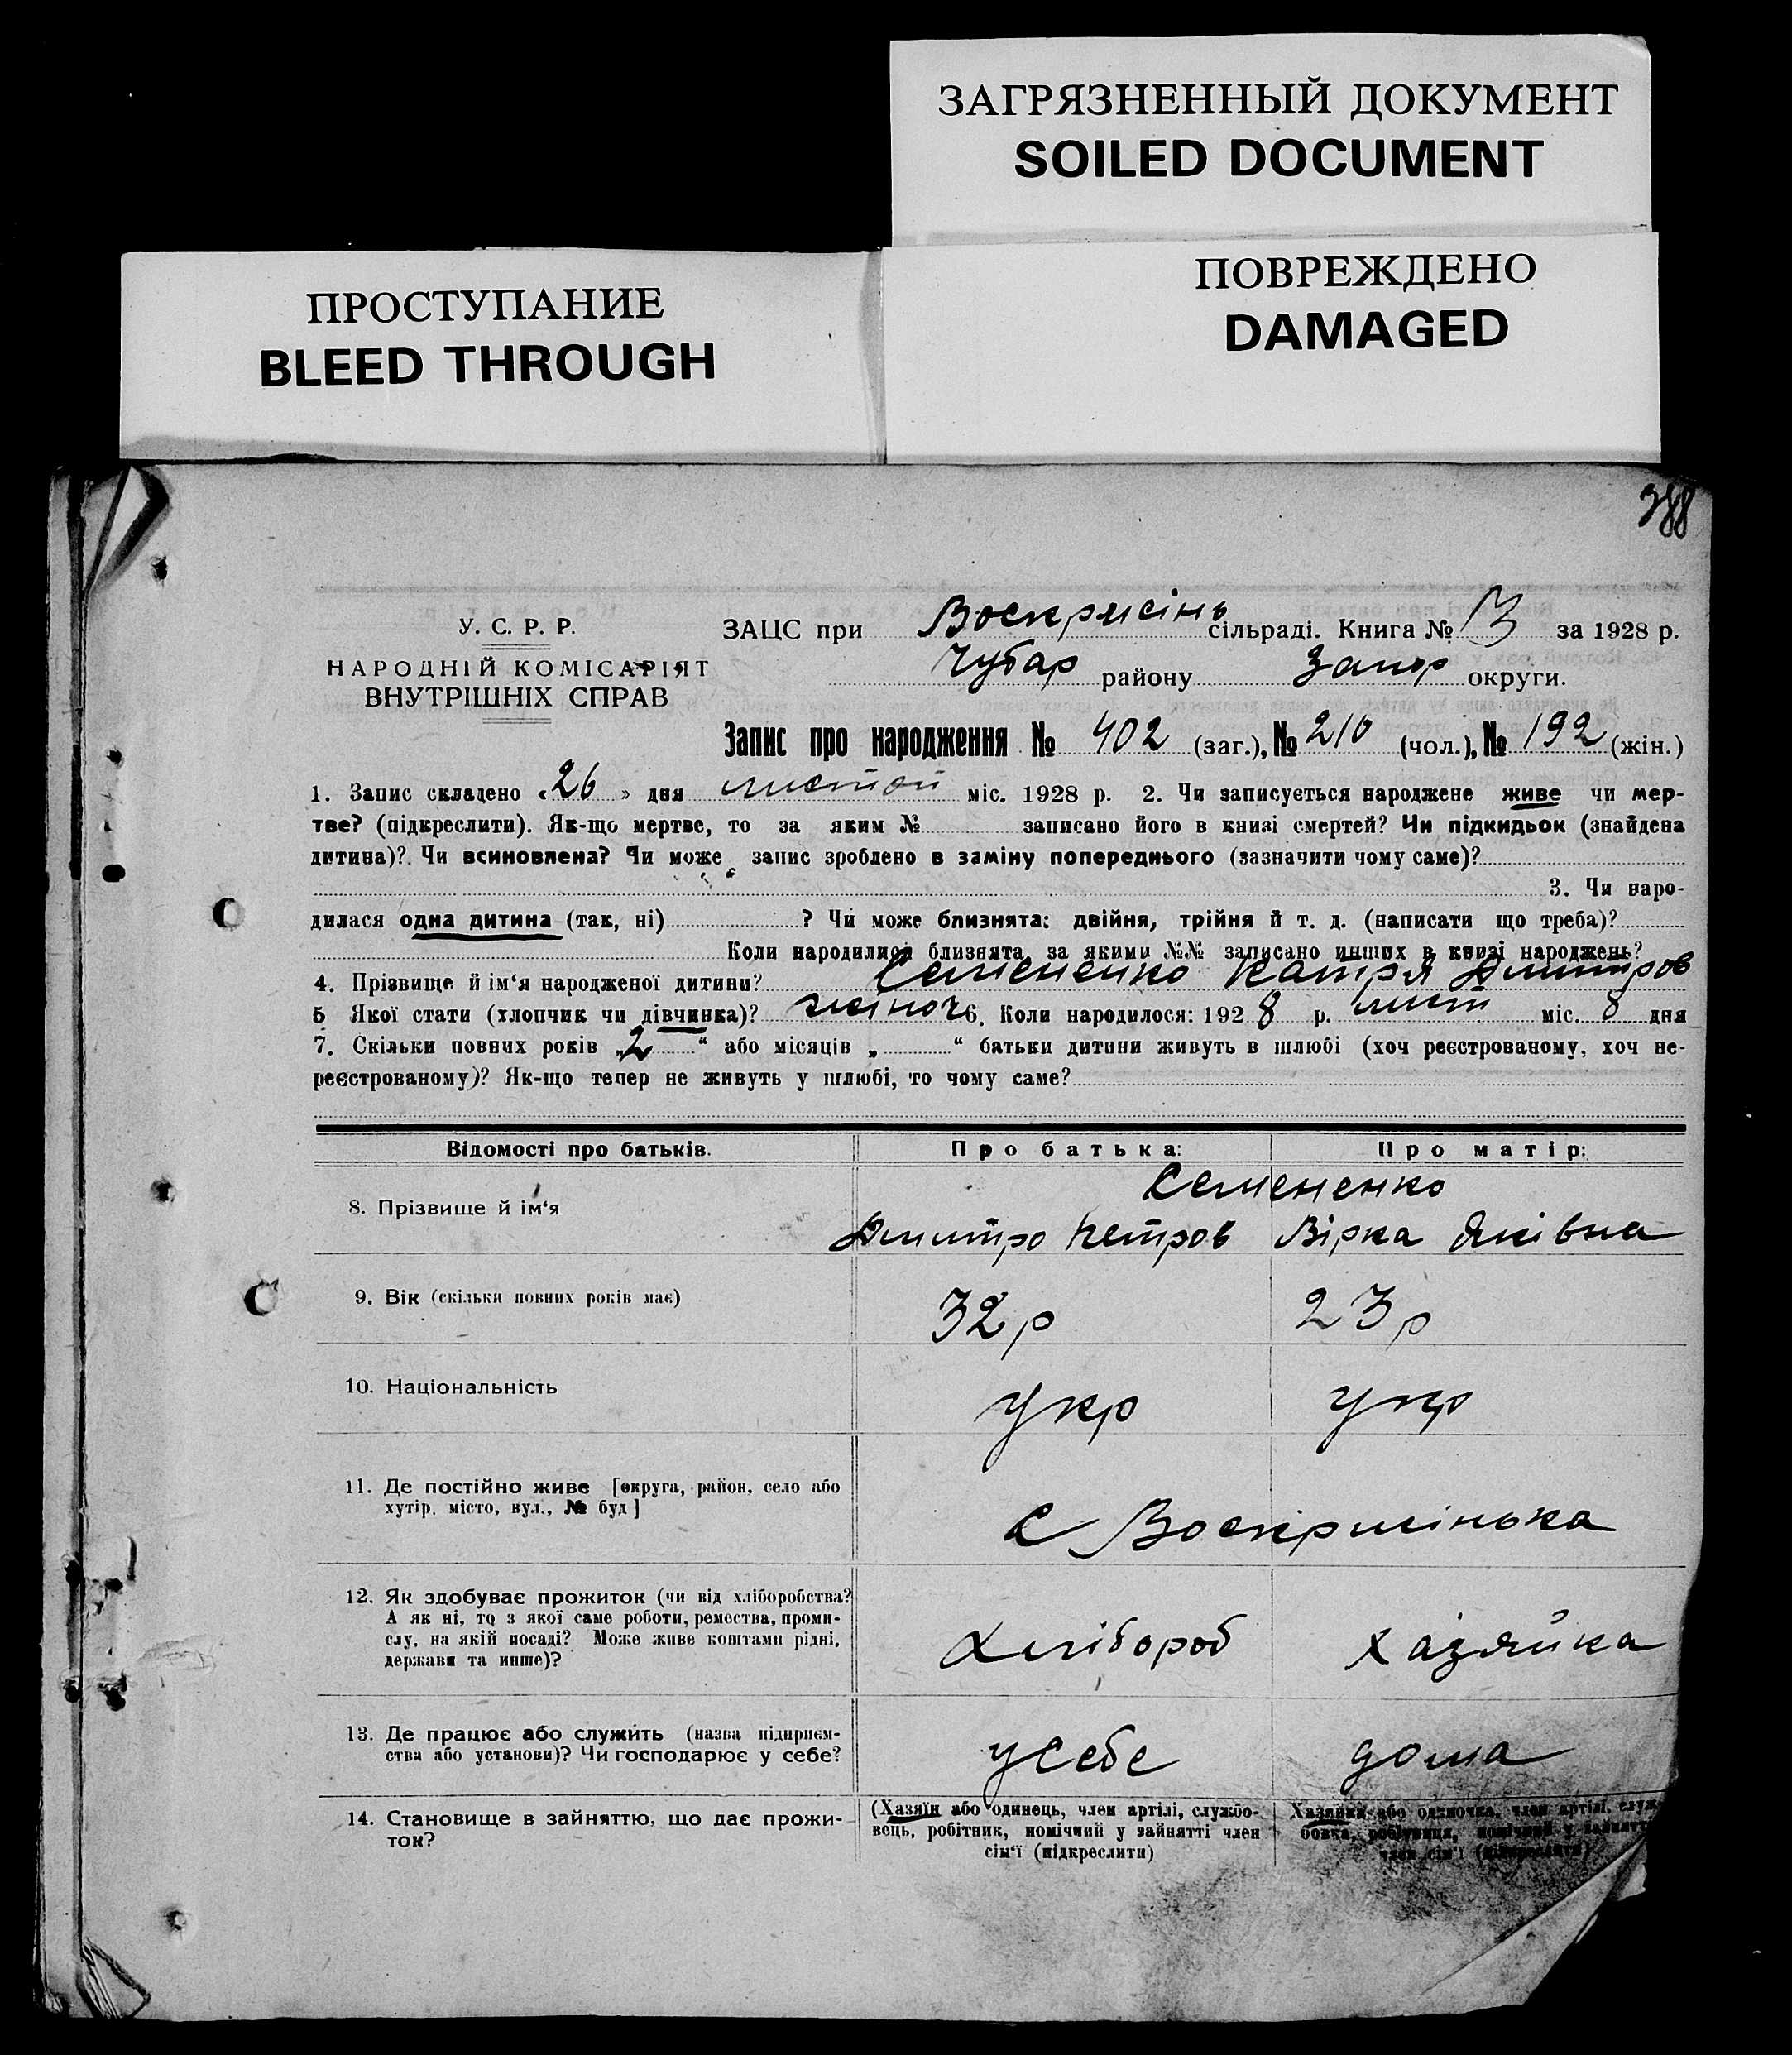 ЗАГРЯЗНЕННЫЙ ДОКУМЕНТ
SOILED DOCUMENT
ПРОСТУПАНИЕ
BLEED THROUGH
ПОВРЕЖДЕНО
DAMAGED
388
У. С. Р. Р.
НАРОДНІЙ КОМІСАРІЯТ
ВНУТРІШНІХ СПРАВ
ЗАЦС при Воскрисінь сільраді. Книга № за 1928 р.
Чубар району Запор округи.
Запис про народження № 402 (заг.), № 210 (чол.), № 192 (жін.)
1. Запис складено «26» дня листоп міс. 1928 р. 2. Чи записується народжене живе чи мер-
тве? (підкреслити). Як-що мертве, то за яким № записано його в книзі смертей? Чи підкидьок (знайдена
дитина)? Чи всиновлена? Чи може запис зроблено в заміну попереднього (зазначити чому саме)?
3. Чи наро-
дилася одна дитина (так, ні) ? Чи може близнята: двійня, трійня й т. д. (написати що треба)?
Коли народилися близнята, за якими №№ записано инших в книзі народжень?
4. Прізвище й ім‘я народженої дитини? Семененко Катря Дмитров
5 Якої стати (хлопчик чи дівчинка)? жіноч 6. Коли народилося: 1928 р. лист міс. 8 дня
7. Скільки повних років „2“ або місяців „ “ батьки дитини живуть в шлюбі (хоч реєстрованому, хоч не-
реєстрованому)? Як-що тепер не живуть у шлюбі, то чому саме?
Відомості про батьків. Про батька: Про матір:
8. Прізвище й ім‘я Семененко
Дмитро Петров Вірка Яківна
9. Вік (скільки повних років має) 32 р 23 р
10. Національність укр укр
11. Де постійно живе [округа, район, село або
хутір, місто, вул., № буд]
С Воскрисінька
12. Як здобуває прожиток (чи від хліборобства?
А як ні, то з якої саме роботи, ремества, проми-
слу, на якій посаді? Може живе коштами рідні,
держави та инше)?
Хлібороб хазяйка
13. Де працює або служить (назва підприєм-
ства або установи)? Чи господарює у себе?
у себе дома
14. Становище в зайняттю, що дає прожи-
ток?
(Хазяїн або одинець, член артілі, службо-
вець, робітник, помічний у зайнятті член
сім‘ї (підкреслити)
Хазяйка або одиночка, член артілі, служ-
бовка, робітниця, помічний у зайнятті
член сім‘ї (підкреслити)